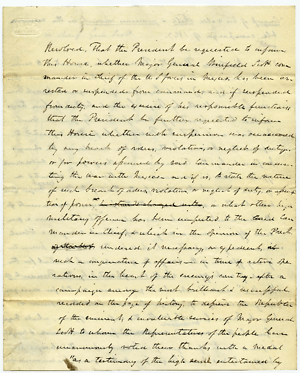 Resolved, That the President be requested to inform
this House, whether Major General Winfield Scott com-
mander in chief of the U.S. forces in Mexico, has been ar-
rested or suspended from command and if suspended
from duty, and the exercise of his responsible functions
that the President be further requested to inform
this House whether such suspension was occasioned
by any breach of orders, violation, or neglect of duty,
or for powers assumed by said Commander in
the war with Mexico and if so, to state the nature
of such breach of orders, violation or neglect of duty or
of powers or what other high
military offence has been imputed to the said Com-
mander in chief, & which in the opinion of the
rendered it necessary or expedient, in
such a conjuncture of affairs — in time of active ope-
rations, in the heart of the enemy's country, after a
campaign among the most brilliant & successful
recorded on the page of history, to deprive the Republic
of the eminent & invaluable services of Major General
Scott to whom the Representatives of the people have
unanimously voted their thanks with a medal
"as a testimony of the high sense entertained by